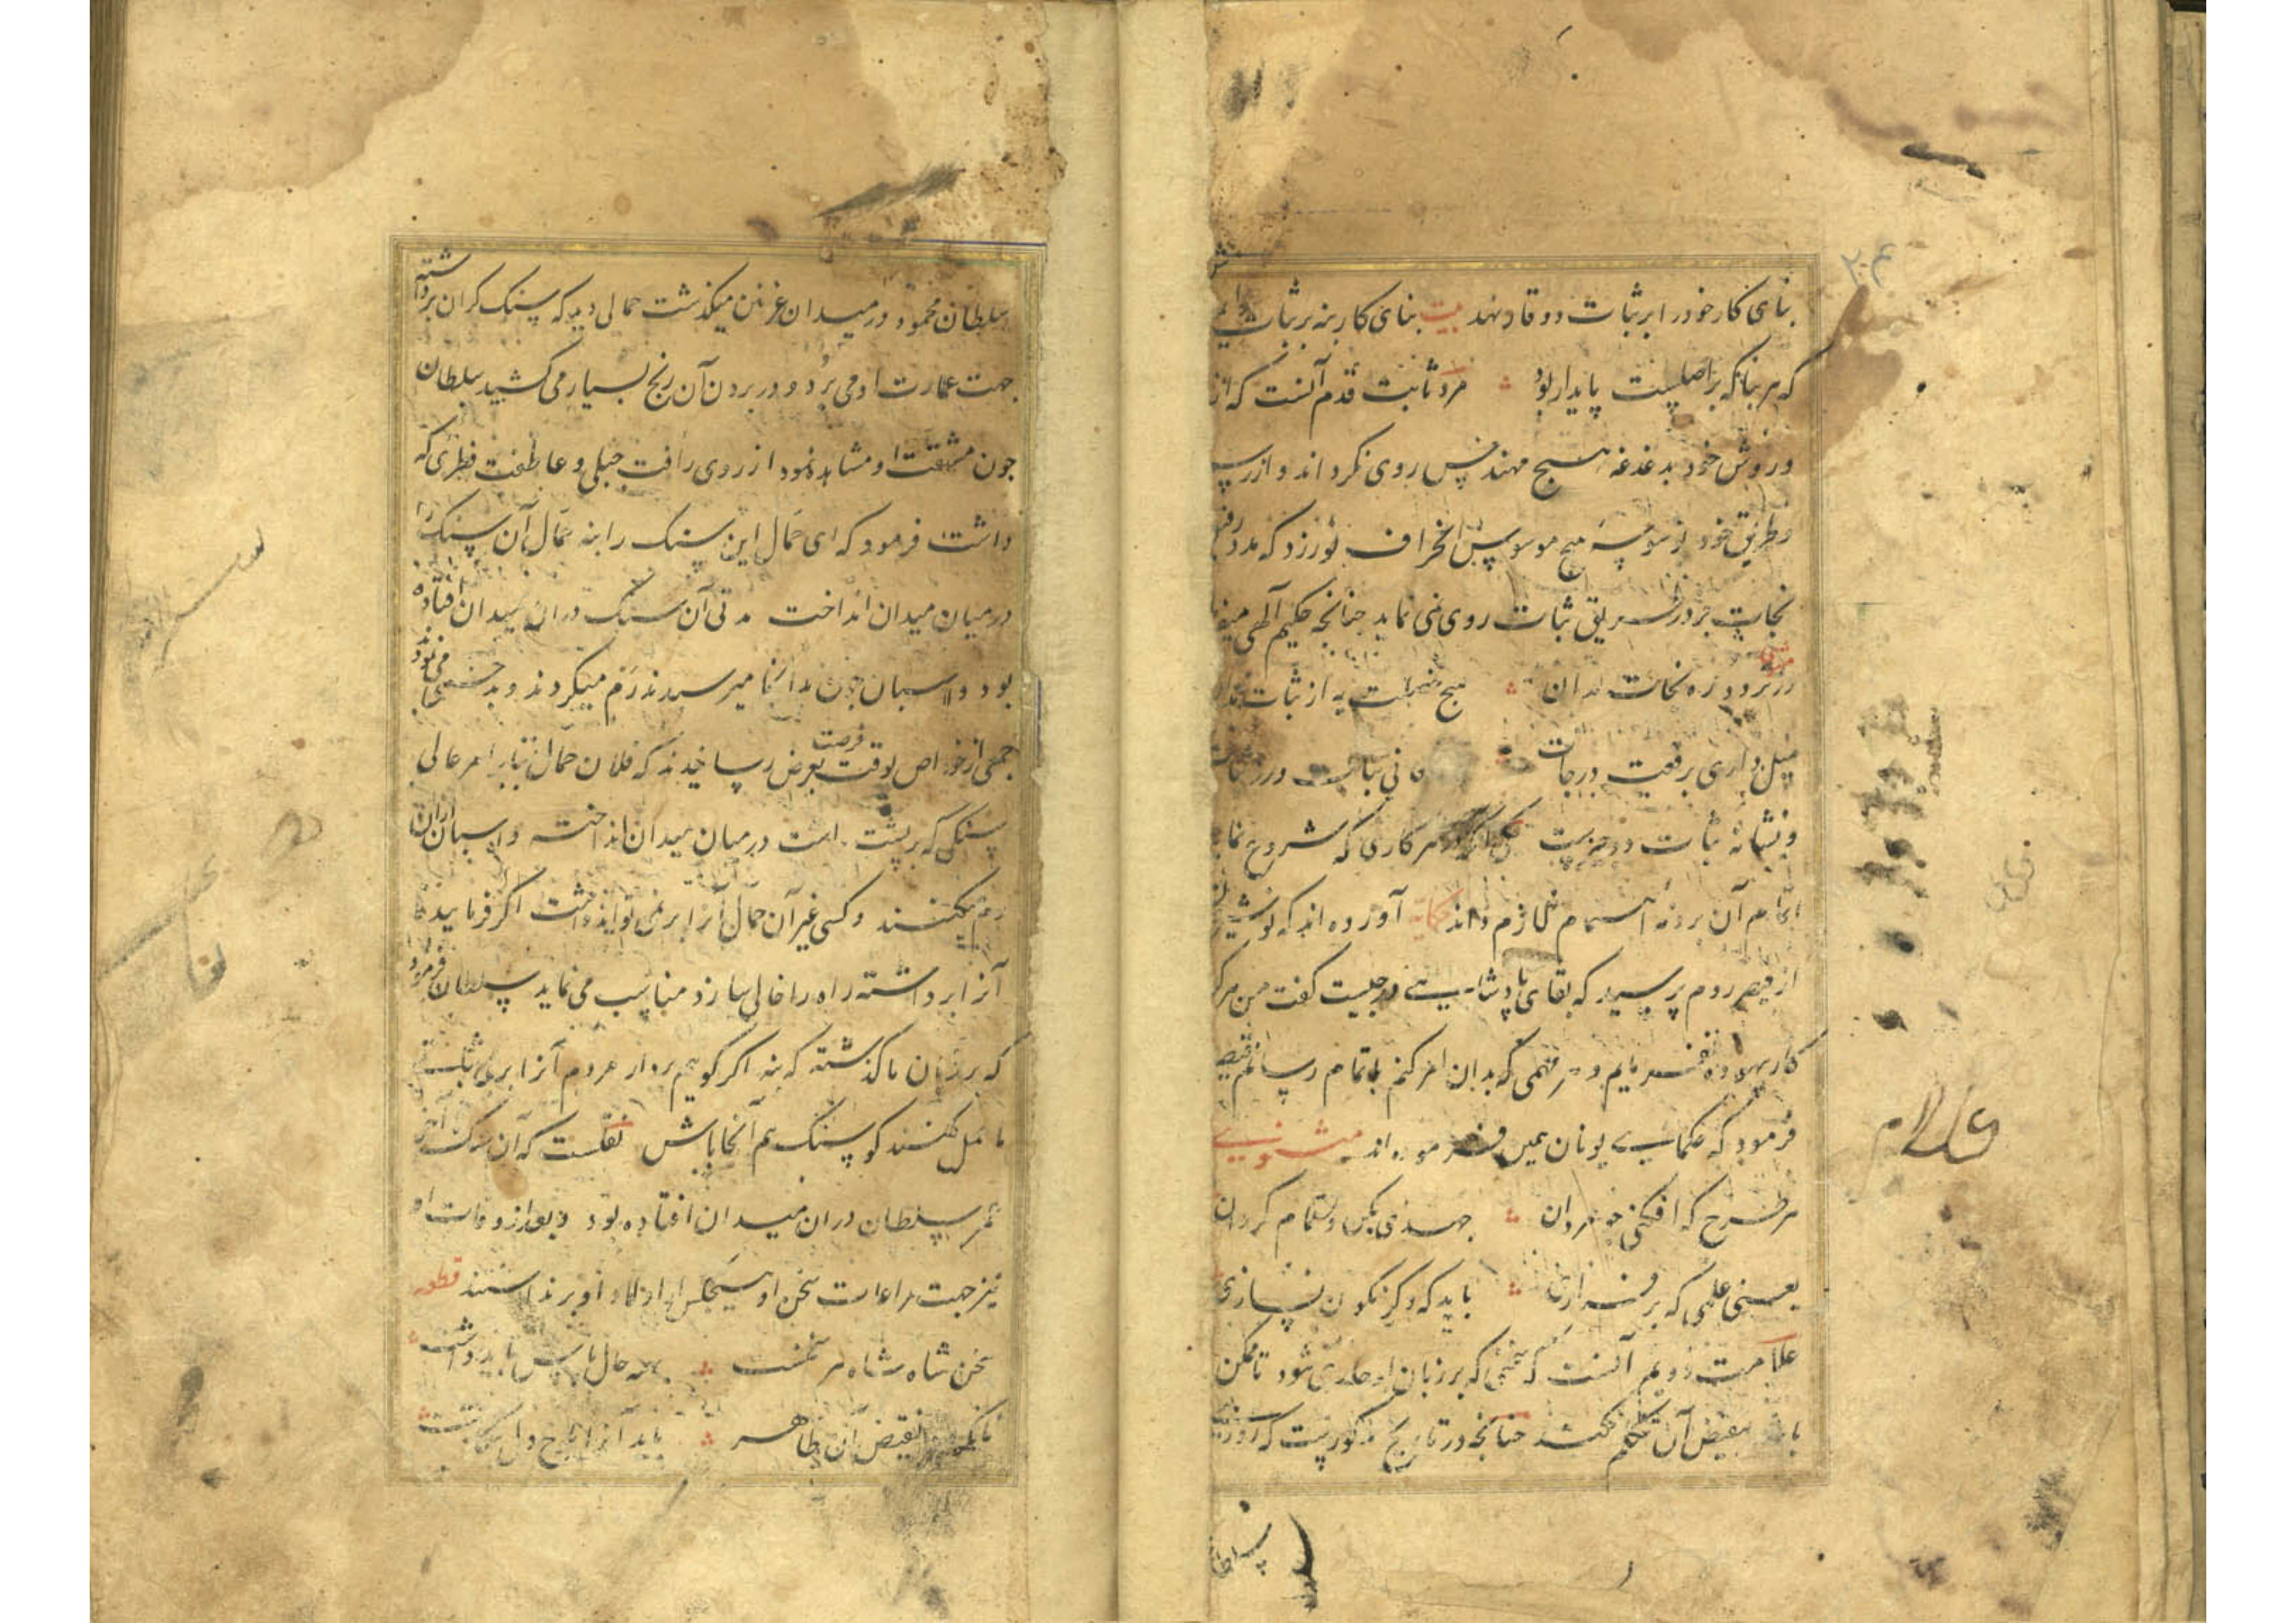 بنای کار خود را بر ثبات و وقار نهد بیت بنای کار بنه بر ثبات
که هر بنا که بر اصلیست پایدار بود مرد ثابت قدم آنست که از
و روش خود بدغدغه هیچ مهندس روی نکرداند و از
و طریق خود بوسوسه هیچ موسوس انحراف نورزد که مدد
نجات جز در طریق ثبات روی نمی نماید چنانچه حکیم الهی
مثنوی
هیچ خصلت به از ثبات
میل داری برفعت درجات
و نشانه ثبات دو چیزست یکی آنکه هر کاری که شروع نماید
اتمام آن بر ذمه اهتمام لازم داند حکایة آورده اند که
از قیصر روم پرسید که بقای پادشاهی در چیست گفت من هرگز
کار بیهوده نفرمایم و هر مهمی که بدان امر کنم باتمام رسانم
فرمود که حکمای یونان همین فرموده اند مثنوی
هر طرح که افکنی چو مردان جهدی بکن و تمام گردان
یعنی علمی که بر فرازی باید که دگر نگون نسازی
علامت دویم آنست که سخنی که بر زبان او جاری شود تا ممکن
باشد بنقیض آن تکلم نکند چنانچه در تاریخ مذکورست که روزی
سلطان
سلطان محمود در میدان غزنین میکذشت حمالی دید که سنک کران برداشته
جهت عمارت او می برد و در بردن آن رنج بسیار می کشید سلطان
چون مشقت او مشاهده نمود از روی رأفت جبلی و عاطفت فطری که
داشت فرمود که ای حمال این سنک را بنه حمال آن سنک را
در میان میدان انداخت مدتی آن سنک در ان میدان افتاده
بود و اسبان چون بدانجا میرسیدند رم میکردند و می نمودند
جمعی از خواص بوقت فرصت بعرض رسانیدند که فلان حمال بنابر امر عالی
سنکی که بر پشت داشت در میان میدان انداخته و اسبان ازان
رم میکنند و کسی غیر آن حمال آنرا بر نمی تواند داشت اکر فرمایید تا
آنرا برداشته راه را خالی سازد مناسب می نماید سلطان فرمود
که بر زبان ما کذشته که بنه اکر کوییم بردار مردم آنرا بر بی ثباتی
ما حمل کنند کو سنک هم آنجا باش نقلست که آن سنک تا آخر
عمر سلطان دران میدان افتاده بود و بعد از وفات او
نیز جهت مراعات سخن او هیچکس از اولاد او بر نداشتند قطعه
سخن شاه شاه سخنست بهمه حال پاس باید داشت
تا نکردد نقیض آن ظاهر باید آنرا بلوح دل
غلام